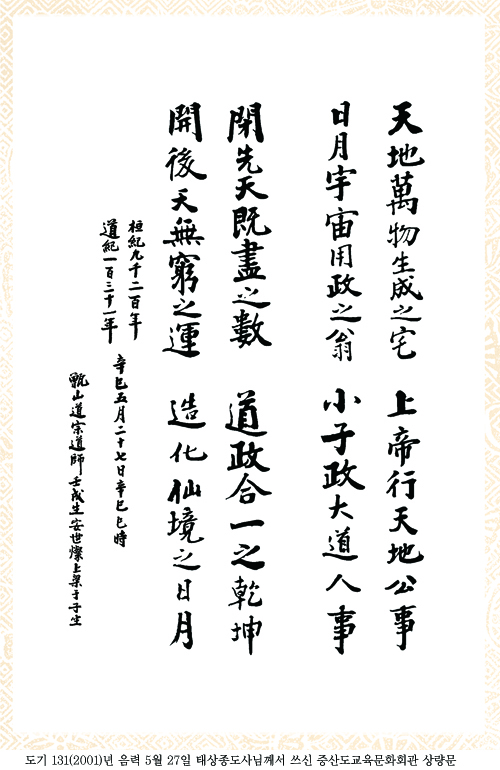 天地萬物生成之宅 上帝行天地公事
日月宇宙用政之翁 小子政大道人事
閉先天旣盡之數 道政合一之乾坤
開後天無窮之運 造化仙境之日月
桓紀九千二百年
道紀一百三十一年
辛巳五月二十七日辛巳巳時
甑山道宗道師壬戌生安世燦上梁于子坐
도기 131(2001)년 음력 5월 27일 태상종도사님께서 쓰신 증산도교육문화회관 상량문